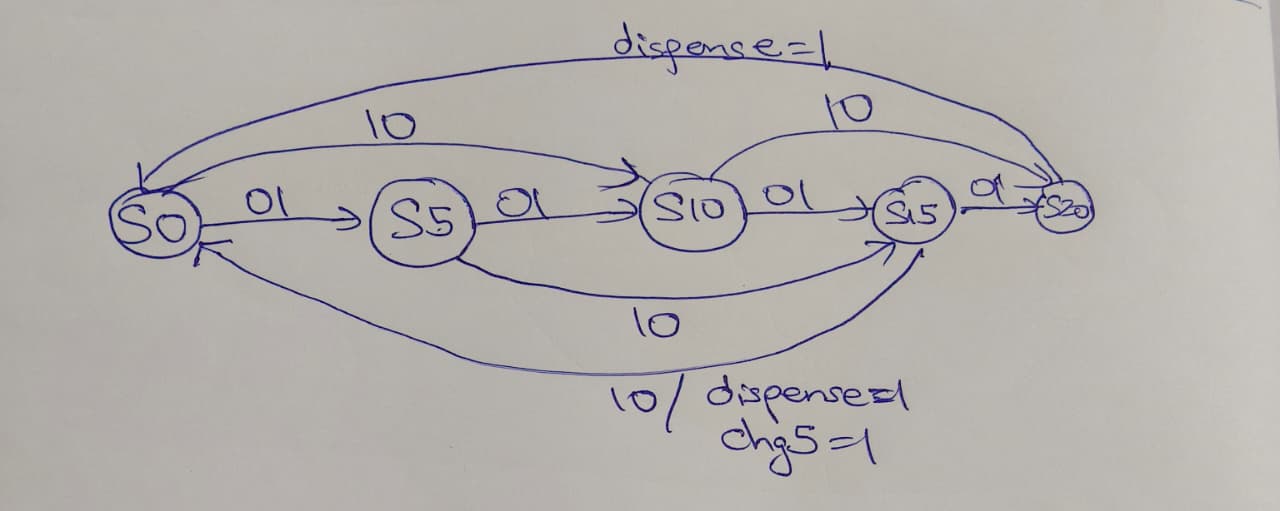 dispense=1
10
10
S0
01
S5
01
S10
01
S15
01
S20
10
10/ dispense=1
chg5=1